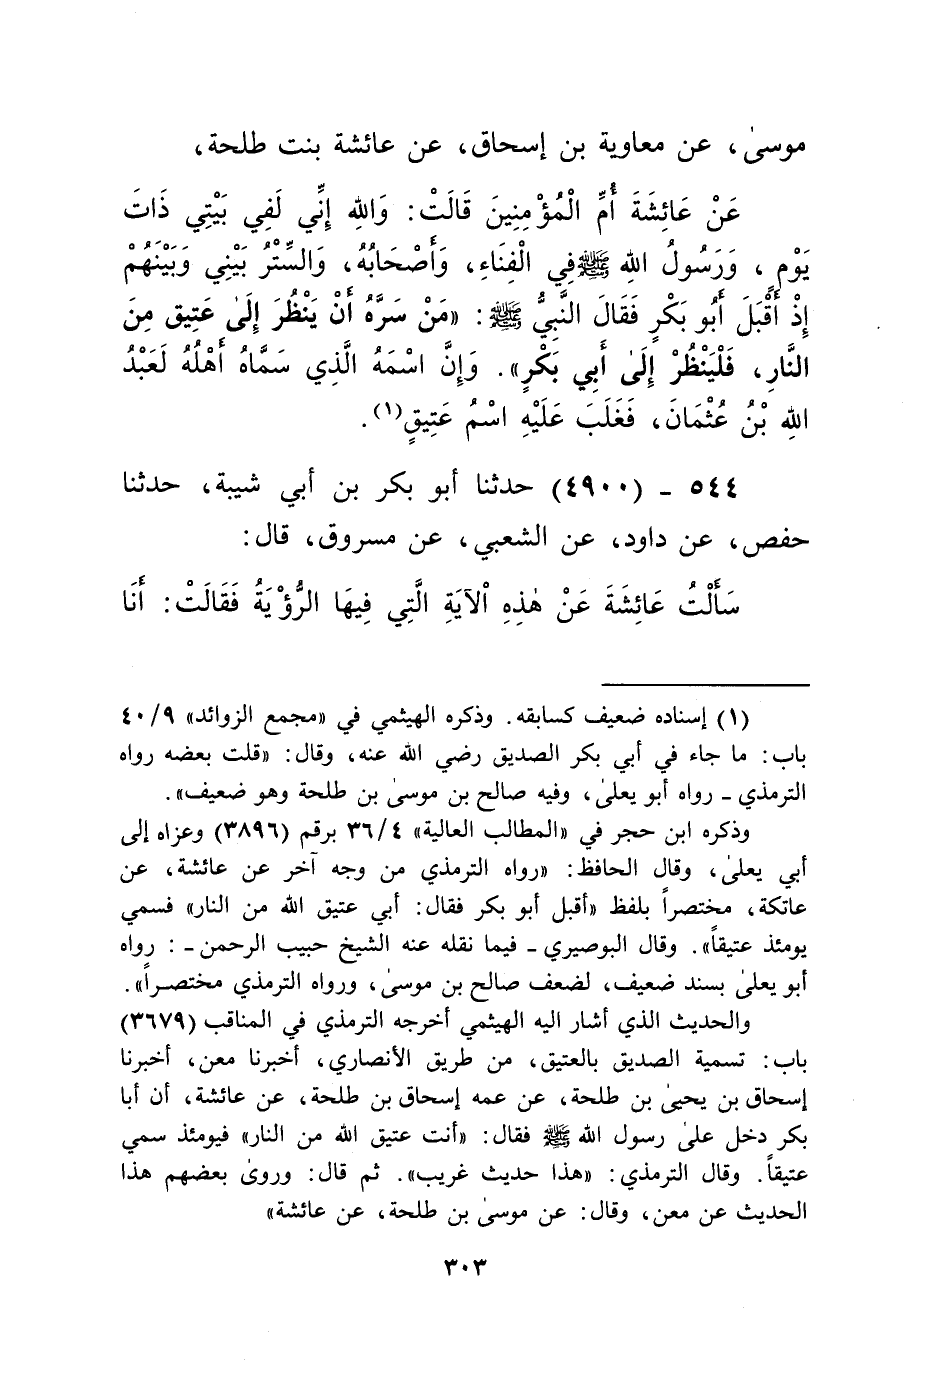 موسىٰ، عن معاوية بن إسحاق، عن عائشة بنت طلحة،
عَنْ عَائِشَةَ أُمِّ الْمُؤْمِنِينَ قَالَتْ: وَاللهِ إِنِّي لَفِي بَيْتِي ذَاتَ
يَوْمٍ، وَرَسُولُ اللهِ ﷺ فِي الْفِنَاءِ، وَأَصْحَابُهُ، وَالسِّتْرُ بَيْنِي وَبَيْنَهُمْ
إِذْ أَقْبَلَ أَبُو بَكْرٍ فَقَالَ النَّبِيُّ ﷺ: «مَنْ سَرَّهُ أَنْ يَنْظُرَ إِلَىٰ عَتِيقٍ مِنَ
النَّارِ، فَلْيَنْظُرْ إِلَىٰ أَبِي بَكْرٍ». وَإِنَّ اسْمَهُ الَّذِي سَمَّاهُ أَهْلُهُ لَعَبْدُ
اللهِ بْنُ عُثْمَانَ، فَغَلَبَ عَلَيْهِ اسْمُ عَتِيقٍ(١).
٥٤٤ - (٤٩٠٠) حدثنا أبو بكر بن أبي شيبة، حدثنا
حفص، عن داود، عن الشعبي، عن مسروق، قال:
سَأَلْتُ عَائِشَةَ عَنْ هٰذِهِ اْلآيَةِ الَّتِي فِيهَا الرُّؤْيَةُ فَقَالَتْ: أَنَا
(١) إسناده ضعيف كسابقه. وذكره الهيثمي في «مجمع الزوائد» ٤٠/٩
باب: ما جاء في أبي بكر الصديق رضي الله عنه، وقال: «قلت بعضه رواه
الترمذي - رواه أبو يعلىٰ، وفيه صالح بن موسىٰ بن طلحة وهو ضعيف».
وذكره ابن حجر في «المطالب العالية» ٣٦/٤ برقم (٣٨٩٦) وعزاه إلى
أبي يعلىٰ، وقال الحافظ: «رواه الترمذي من وجه آخر عن عائشة، عن
عاتكة، مختصراً بلفظ «أقبل أبو بكر فقال: أبي عتيق الله من النار» فسمي
يومئذ عتيقاً». وقال البوصيري - فيما نقله عنه الشيخ حبيب الرحمن -: رواه
أبو يعلىٰ بسند ضعيف، لضعف صالح بن موسىٰ، ورواه الترمذي مختصراً».
والحديث الذي أشار اليه الهيثمي أخرجه الترمذي في المناقب (٣٦٧٩)
باب: تسمية الصديق بالعتيق، من طريق الأنصاري، أخبرنا معن، أخبرنا
إسحاق بن يحيىٰ بن طلحة، عن عمه إسحاق بن طلحة، عن عائشة، أن أبا
بكر دخل علىٰ رسول الله ﷺ فقال: «أنت عتيق الله من النار» فيومئذ سمي
عتيقاً. وقال الترمذي: «هذا حديث غريب». ثم قال: وروىٰ بعضهم هذا
الحديث عن معن، وقال: عن موسىٰ بن طلحة، عن عائشة»
٣٠٣